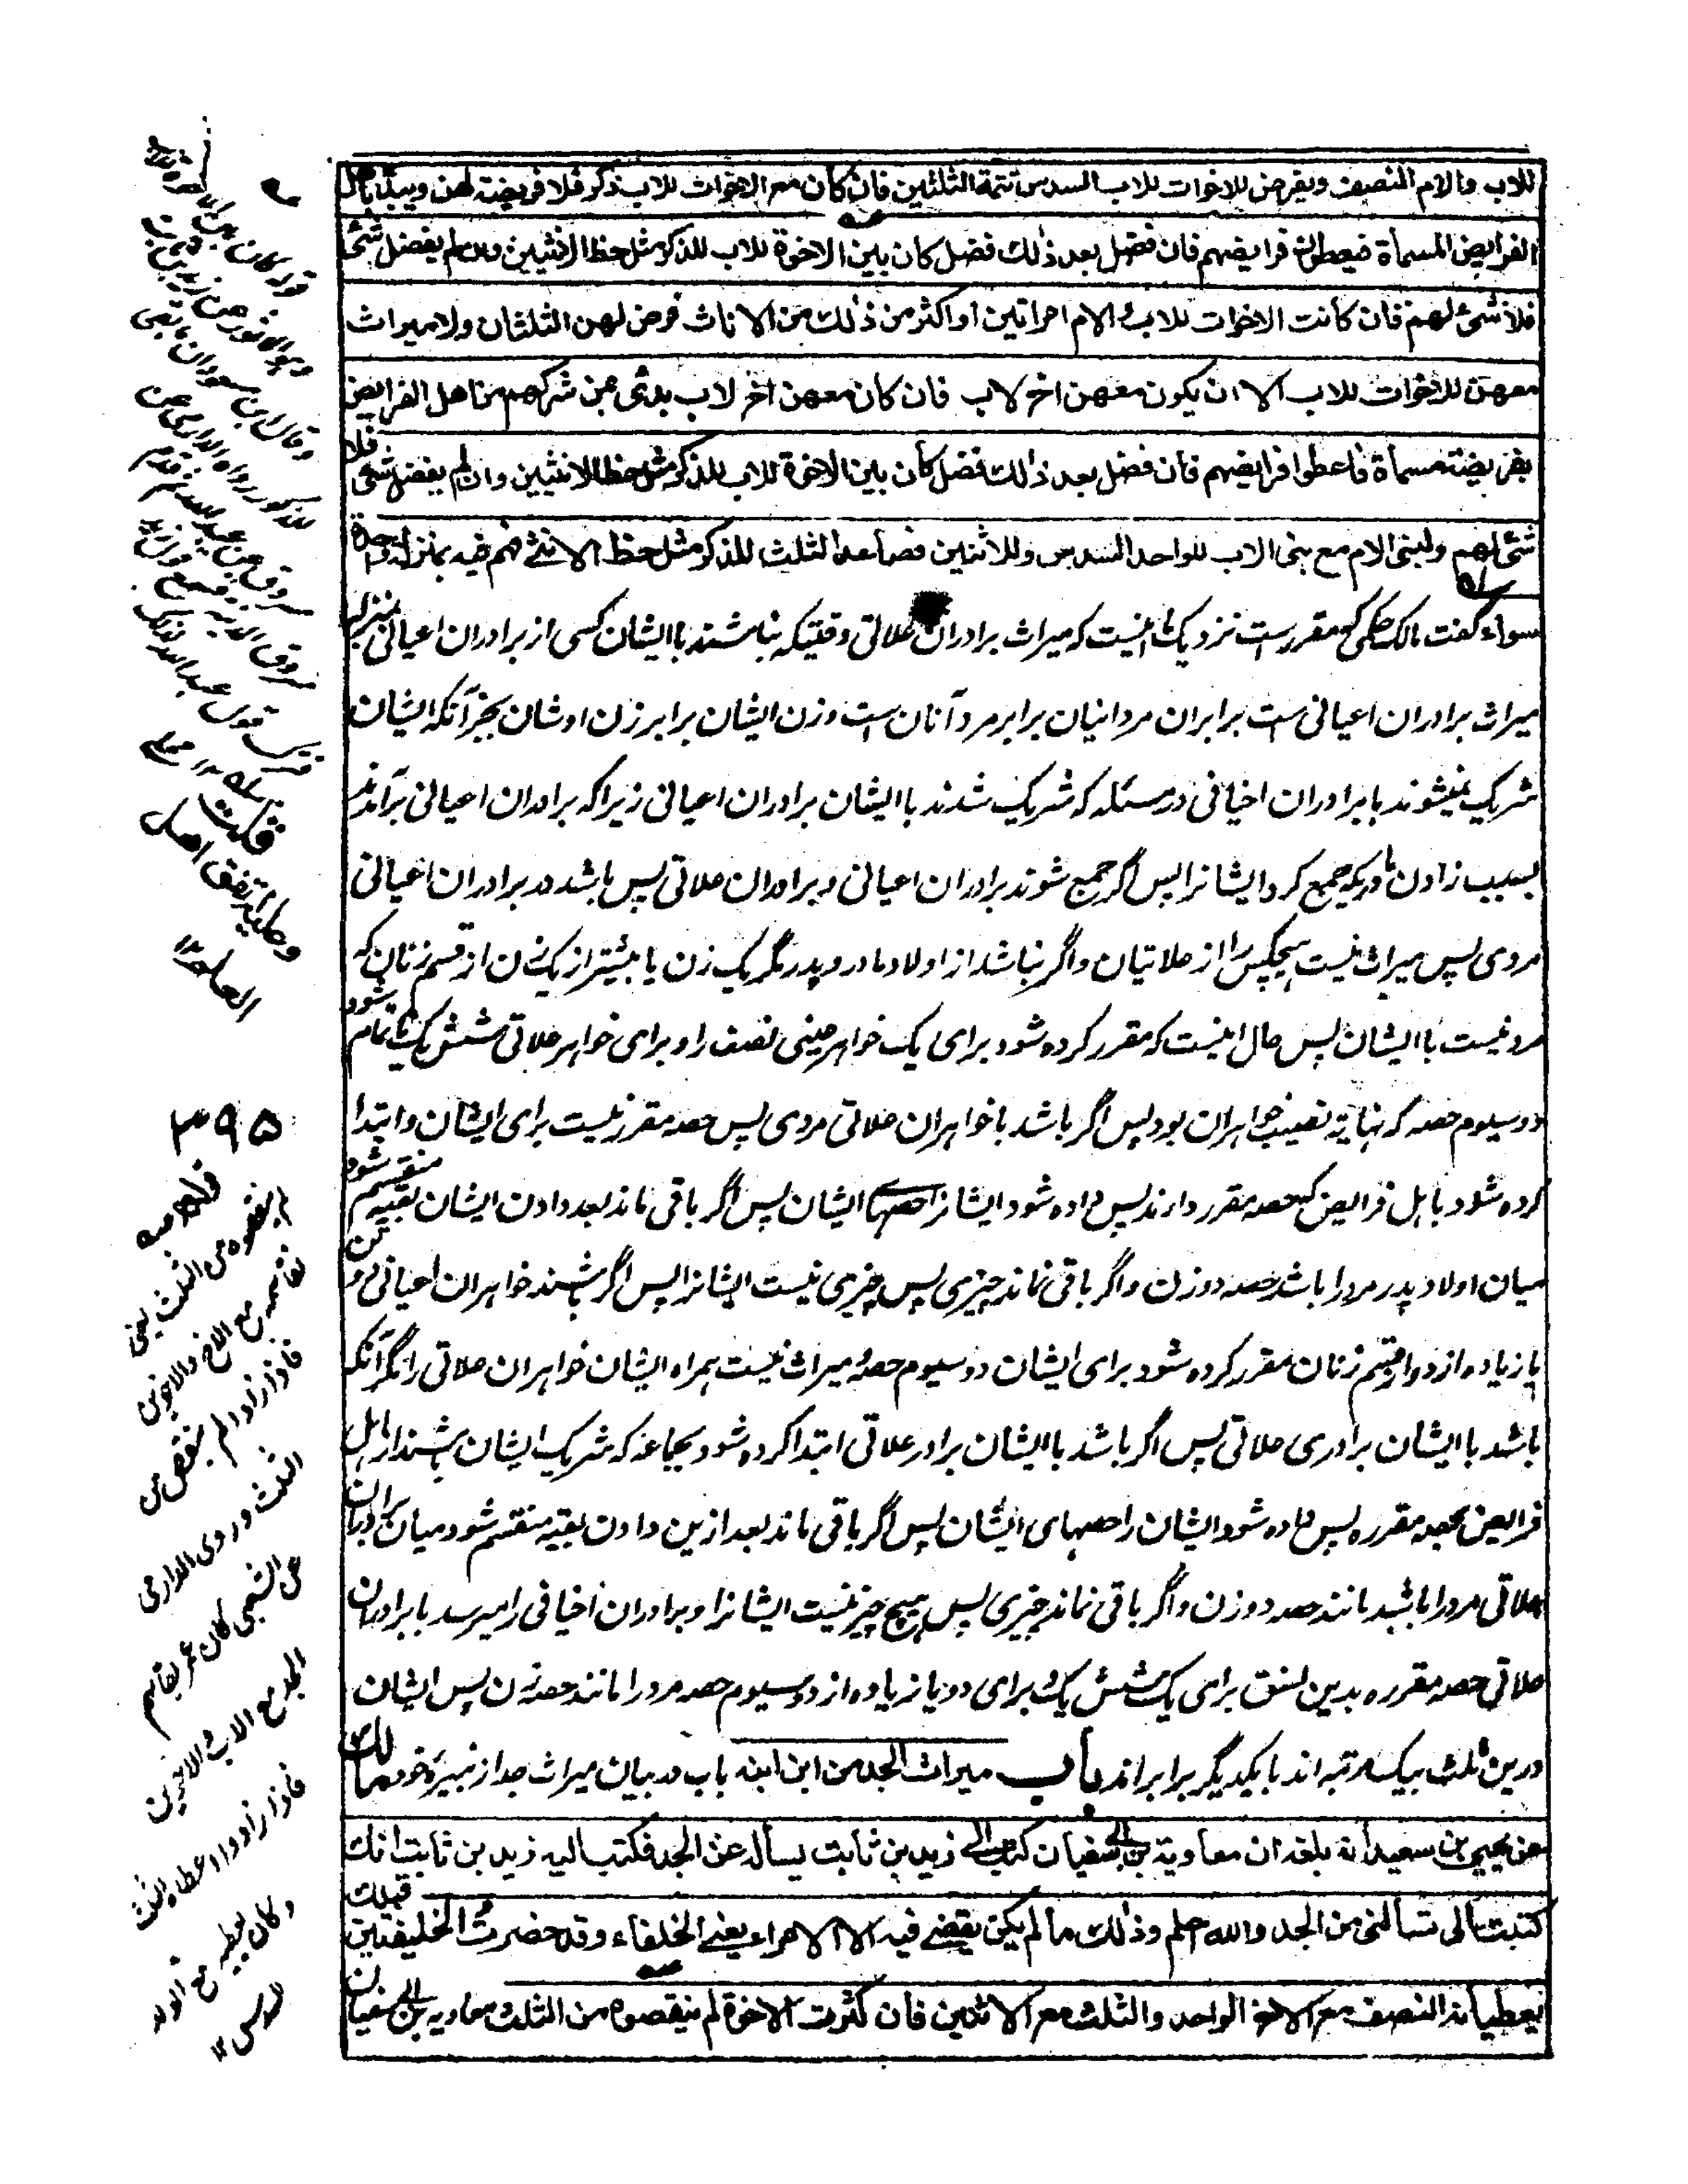 للاب والام النصف ويفرض للاخوات للاب السدس تتمة الثلثين فان كان مع الاخوات للاب ذكر فلا فريضة لهن ويبدأ باهل
الفرايض المسماة فيعطون فرايضهم فان فضل بعد ذلك فضل كان بين الاخوة للاب للذكر مثل حظ الانثيين وان لم يفضل شئ
فلا شئ لهم فان كانت الاخوات للاب والام امراتين او اكثر من ذلك من الاناث فرض لهن الثلثان ولا ميراث
معهن للاخوات للاب الا ان يكون معهن اخ لاب فان كان معهن اخ لاب بدئ بمن شركهم من اهل الفرايض
بفريضة مسماة فاعطوا فرايضهم فان فضل بعد ذلك فضل كان بين الاخوة للاب للذكر مثل حظ الانثيين وان لم يفضل شئ فلا
شئ لهم ولبنى الام مع بنى الاب للواحد السدس وللاثنين فصاعدا الثلث للذكر مثل حظ الانثى هم فيه بمنزلة واحدة
سواء گفت مالک حکمی که مقررست نزدیک ما اینست که میراث برادران علاتی وقتیکه نباشند با ایشان کسی از برادران اعیانی بمنزله
میراث برادران اعیانی ست برابران مرد اینان برابر مرد آنان است وزن ایشان برابر زن اوشان بجز آنکه ایشان
شریک نمیشوند با برادران اخیافی در مسئله که شریک شدند با ایشان برادران اعیانی زیرا که برادران اعیانی برآمدند
بسبب زادن مادریکه جمع کرد ایشانرا پس اگر جمع شوند برادران اعیانی و برادران علاتی پس باشد در برادران اعیانی
مردی پس میراث نیست هیچکس را از علاتیان و اگر نباشد از اولاد مادر و پدر مگر یک زن یا بیشتر از یک زن از قسم زنان که
مرد نیست با ایشان پس حال اینست که مقرر کرده شود برای یک خواهر عینی نصف را و برای خواهر علاتی شش یک تا تمام شود
دو سیوم حصه که نهایة نصیب خواهران بود پس اگر باشد با خواهران علاتی مردی پس حصه مقرر نیست برای ایشان و ابتدا
کرده شود با هل فرایض که حصه مقرر دارند پس داده شود ایشانرا حصهای ایشان پس اگر باقی ماند بعد دادن ایشان بقیه منقسم شود
میان اولاد پدر مرد را باشد حصه دو زن و اگر باقی نماند چیزی پس چیزی نیست ایشانرا پس اگر باشند خواهران اعیانی دو تن
یا زیاده از دو از قسم زنان مقرر کرده شود برای ایشان دو سیوم حصه و میراث نیست همراه ایشان خواهران علاتی را مگر آنکه
باشد با ایشان برادری علاتی پس اگر باشد با ایشان برادر علاتی ابتدا کرده شود بجماعه که شریک ایشان باشند از اهل
فرایض بحصه مقرره پس داده شود ایشان را حصهای ایشان پس اگر باقی ماند بعد ازین دادن بقیه منقسم شود میان برادران
علاتی مرد را باشد مانند حصه دو زن و اگر باقی نماند چیزی پس هیچ چیز نیست ایشانرا و برادران اخیافی را میرسد با برادران
علاتی حصه مقرره بدین نسق برای یک شش یک و برای دو یا زیاده از دو سیوم حصه مرد را مانند حصه زن پس ایشان
درین ثلث بیک مرتبه اند با یکدیگر برابر اند باب ميراث الجد من ابن ابنه باب در بیان میراث جد از نبیره خود مالك
عن يحيى بن سعيد انه بلغه ان معاوية بن ابى سفيان كتب الى زيد بن ثابت يسأله عن الجد فكتب اليه زيد بن ثابت انك
كتبت الى تسألنى من الجد والله اعلم وذلك ما لم يكن يقضى فيه الا الامراء يعنى الخلفاء وقد حضرت الخليفتين قبلك
يعطيانه النصف مع الاخ الواحد والثلث مع الاثنين فان كثرت الاخوة لم ينقصوه من الثلث معاویه بن ابی سفیان
قلت
وعليه اتفق اهل
العلم ١٢
٣٩٥
لم ينقصوه من الثلث يعنى
نقاسمه مع الاخ والاخوين
فاذا زادوا لم ينقص من
الثلث وروى الدارمى
عن الشعبى كان عمر يقاسم
الجد مع الاخ والاخوين
فاذا زادوا اعطاه الثلث
وكان يعطيه مع الولد
السدس ١٢